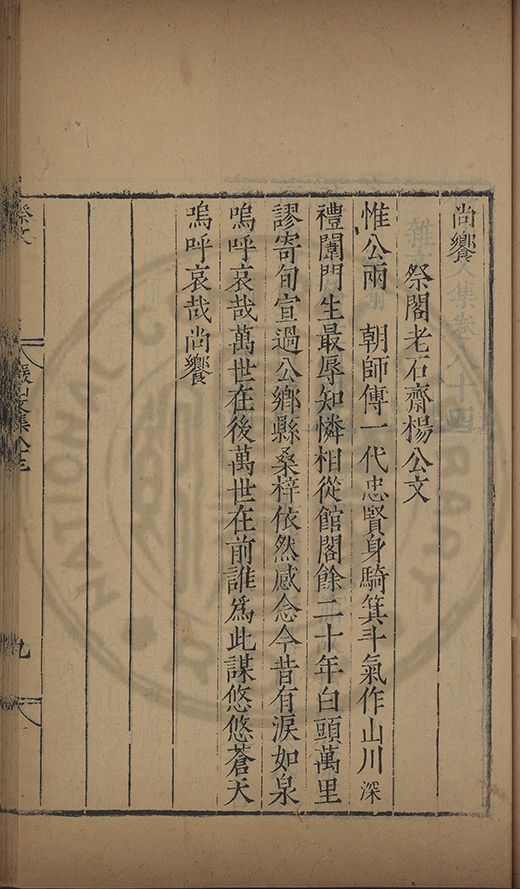 尚饗
祭閣老石齋楊公文
惟公兩　朝師傅一代忠賢身騎箕斗氣作山川深
禮闈門生最辱知憐相從館閣餘二十年白頭萬里
謬寄旬宣過公鄉縣桑梓依然感念今昔有淚如泉
嗚呼哀哉萬世在後萬世在前誰為此謀悠悠蒼天
嗚呼哀哉尚饗
九